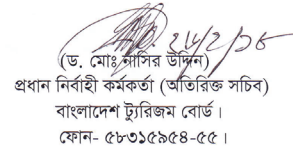 ২৮/২/১৮
(ড. মোঃ নাসির উদ্দিন)
প্রধান নির্বাহী কর্মকর্তা (অতিরিক্ত সচিব)
বাংলাদেশ ট্যুরিজম বোর্ড।
ফোন- ৫৮৩১৫৯৫৪-৫৫।